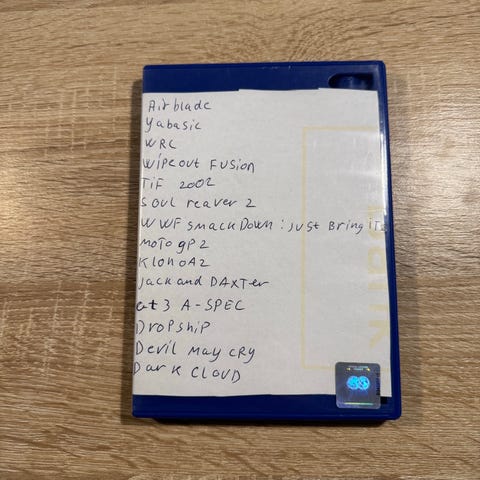 Airblade
Yabasic
WRC
Wipeout Fusion
TiF 2002
Soul reaver 2
WWF smackDown: just Bring iT
MoTo gP 2
KlonoA2
Jack and DAXTer
gt 3 A-SPEC
DropshiP
Devil May CRy
Dark CLOUD